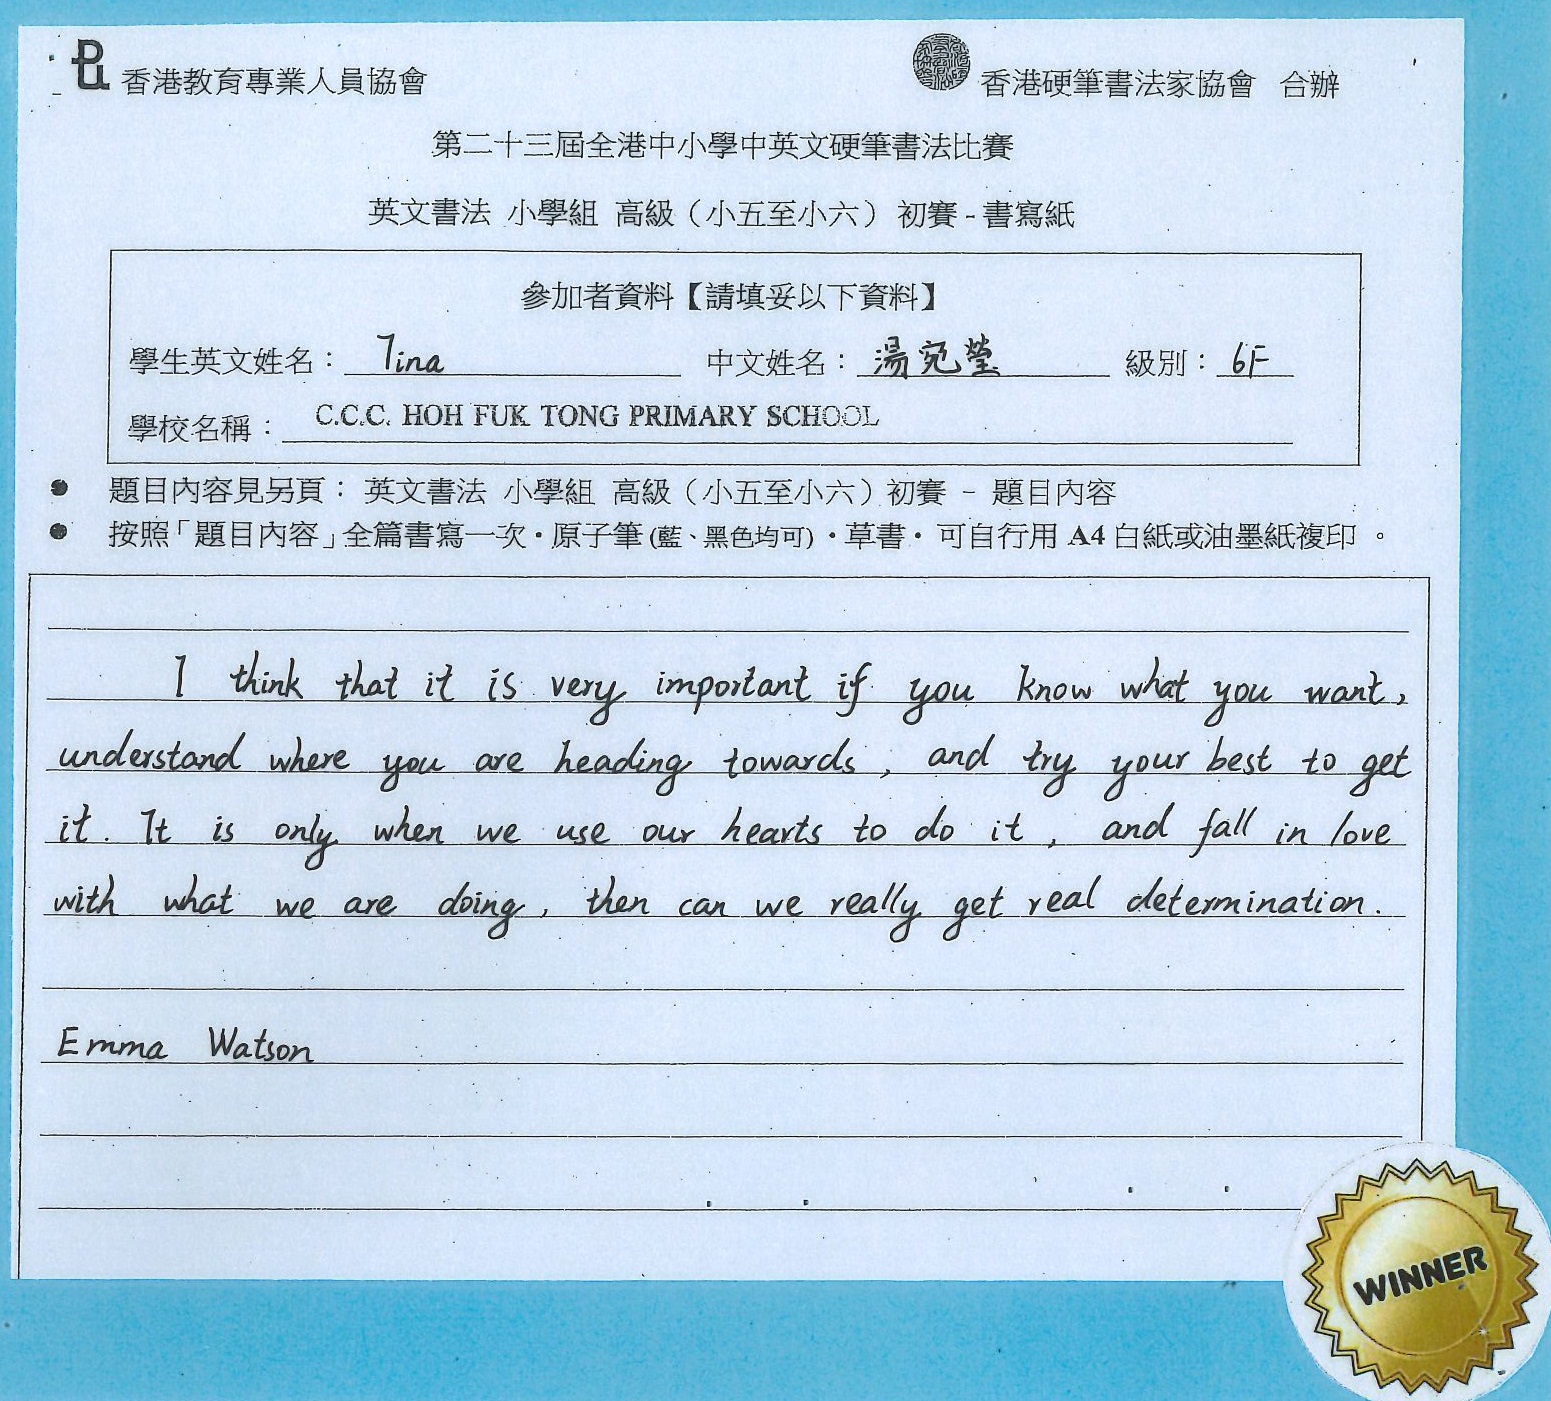 香港教育專業人員協會
香港硬筆書法家協會 合辦
第二十三屆全港中小學中英文硬筆書法比賽
英文書法 小學組 高級（小五至小六）初賽 - 書寫紙
參加者資料【請填妥以下資料】
學生英文姓名： Tina 中文姓名： 湯宛瑩 級別： 6F
學校名稱： C.C.C. HOH FUK TONG PRIMARY SCHOOL
● 題目內容見另頁： 英文書法 小學組 高級（小五至小六）初賽 - 題目內容
● 按照「題目內容」全篇書寫一次・原子筆 (藍、黑色均可)・草書・可自行用 A4 白紙或油墨紙複印。
I think that it is very important if you know what you want,
understand where you are heading towards, and try your best to get
it. It is only when we use our hearts to do it, and fall in love
with what we are doing, then can we really get real determination.
Emma Watson
WINNER